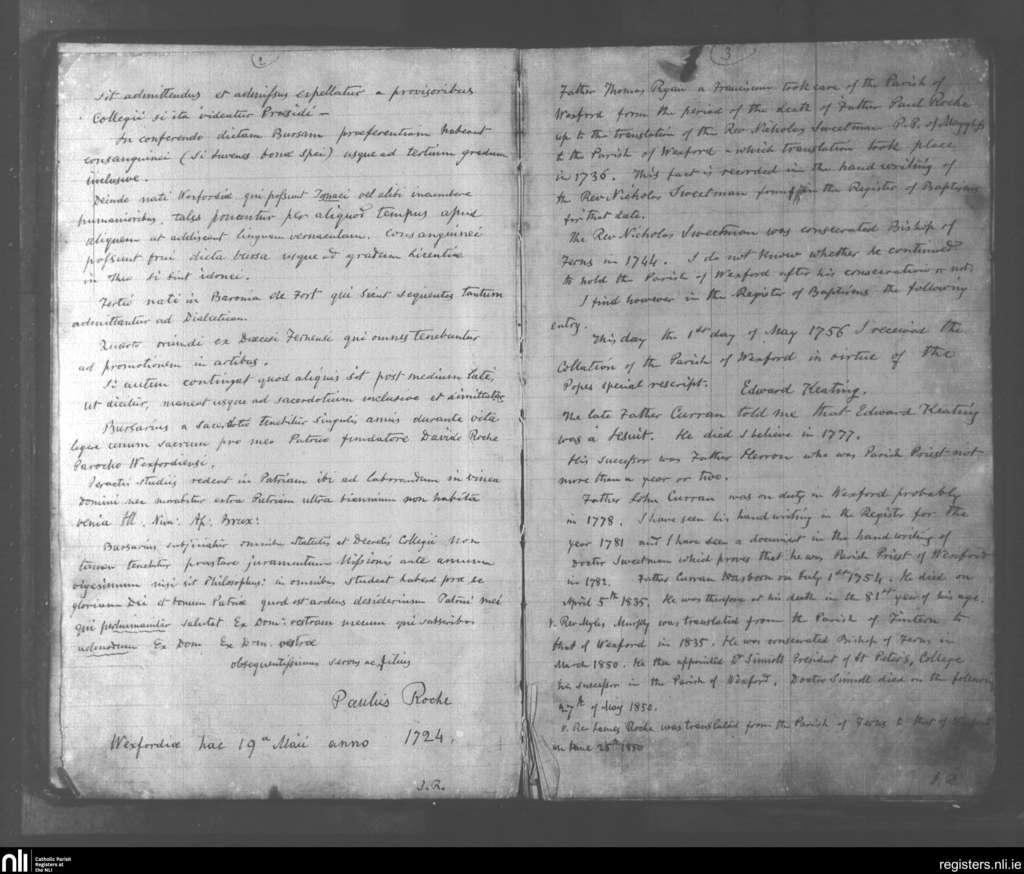 2
sit admittendus et admissus expellatur a provisoribus
Collegii si ita videatur Præsidi –
In conferendo dictam Bursam præferentiam habeant
consanguinei (si Iuvenes bonæ spei) usque ad tertium gradum
inclusive.
Deinde nati Wexfordiæ qui possunt vel alibi
humanioribus, tales ponentur per aliquod tempus apud
aliquem ut addiscant linguam vernaculam. Consanguinei
possunt frui dicta bursa usque ad gradum Licentiæ
in Theo si sint idonei.
Tertio nati in Baronia de Fort qui sicut sequentes tantum
admittantur ad Dialecticam.
Quarto oriundi ex Diœcesi Fernensi qui omnes tenebuntur
ad promotionem in artibus.
Si autem contingat quod aliquis sit post medium
ut dicitur, maneat usque ad sacerdotium inclusive et dimittatur
Bursarius a sacerdotio tenebitur singulis annis durante vita
legere unum sacrum pro meo Patruo fundatore Davide Roche
Parocho Wexfordiensi.
Peractis studiis redeat in Patriam ibi ad laborandum in vinea
Domini nec morabitur extra Patriam ultra biennium non habita
venia Ill. Nun: Ap. Brux:
Bursarius subjiciatur omnibus Statutis et Decretis Collegii non
tamen tenebitur præstare juramentum Missionis ante annum
vigesimum nisi sit Philosophus: in omnibus studeat habere præ se
gloriam Dei et bonum Patriæ quod est ardens desiderium Patrui mei
qui perhumaniter salutat Ex Dom: vestram mecum qui subscribor
admodum Ex Dom Ex Dom. vestræ
obsequentissimus servus ac filius
Paulus Roche
Wexfordiæ hac 19a Maii anno 1724.
J.R.
3
Father Thomas Ryan a Franciscan took care of the Parish of
Wexford from the period of the death of Father Paul Roche
up to the translation of the Rev Nicholas Sweetman P.P. of
to the Parish of Wexford – which translation took place
in 1736. This fact is recorded in the hand writing of
the Rev Nicholas Sweetman found in the Register of Baptisms
for that date.
The Rev Nicholas Sweetman was consecrated Bishop of
Ferns in 1744. I do not know whether he continued
to hold the Parish of Wexford after his consecration or not.
I find however in the Register of Baptisms the following
entry.
This day the 1st day of May 1756 I received the
Collation of the Parish of Wexford in virtue of the
Popes special rescript. Edward Keating.
The late Father Curran told me that Edward Keating
was a Jesuit. He died I believe in 1777.
His successor was Father Herron who was Parish Priest not
more than a year or two.
Father John Curran was on duty in Wexford probably
in 1778. I have seen his hand writing in the Register for the
year 1781 and I have seen a document in the hand writing of
Doctor Sweetman which proves that he was Parish Priest of Wexford
in 1782. Father Curran was born on July 1st 1754. He died on
April 5th 1835. He was therefore at his death in the 81st year of his age.
v. Rev Myles Murphy was translated from the Parish of Tintern to
that of Wexford in 1835. He was consecrated Bishop of Ferns in
March 1850. He then appointed Dr Sinnott President of St Peter's College
his successor in the Parish of Wexford. Doctor Sinnott died on the following
27th of May 1850.
v. Rev James Roche was translated from the Parish of Ferns to that of Wexford
on June 25th 1850
J.R.
nli
Catholic Parish
Registers at
the NLI
registers.nli.ie